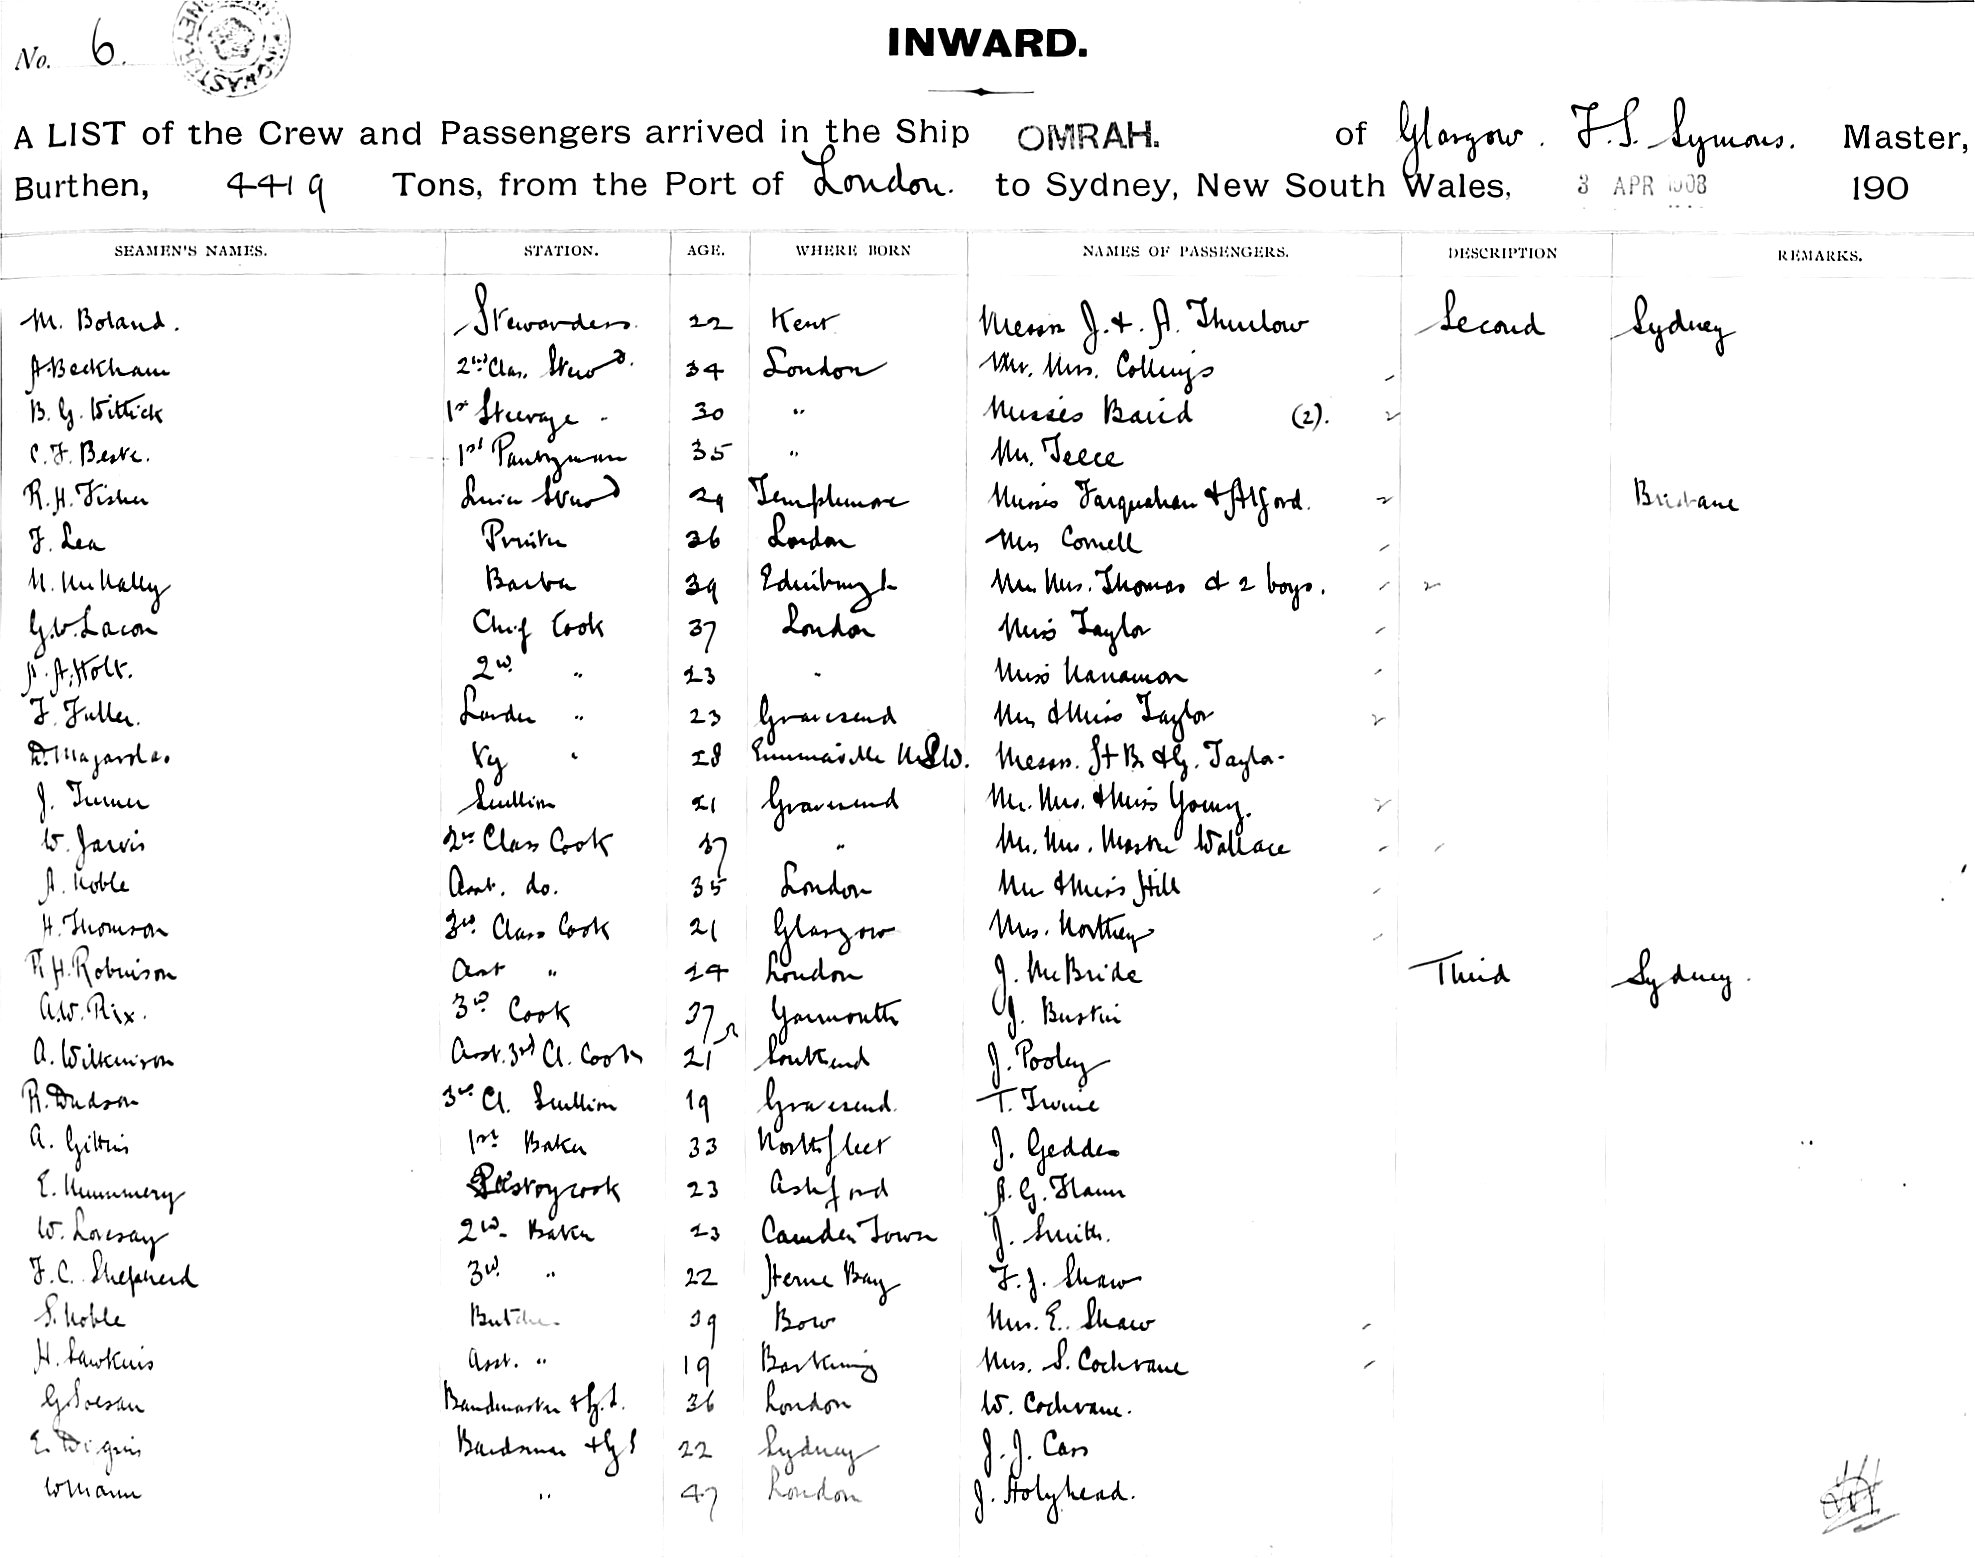 No. 6.
INWARD.
A LIST of the Crew and Passengers arrived in the Ship OMRAH. of Glasgow. F. S. Symons. Master,
Burthen, 4419 Tons, from the Port of London. to Sydney, New South Wales, 3 APR 1908 190
SEAMEN'S NAMES. STATION. AGE. WHERE BORN NAMES OF PASSENGERS. DESCRIPTION REMARKS.
M. Boland. Stewardess. 22 Kent Messrs J. & A. Thurlow Second Sydney
A. Beckham 2nd Clas. Stewd. 34 London Mr. Mrs. Collings
B. G. Wittick 1st Steerage 30 " Misses Baird (2).
C. F. Beste. 1st Pantryman 35 " Mr. Teece
R. H. Fisher Stewd 29 Templemore Misses Farquahar & Alford. Brisbane
F. Lea Printer 36 London Mrs Cornell
McNally Barber 39 Edinburgh Mr. Mrs. Thomas & 2 boys.
G. W. Lacon Chief Cook 37 London Miss Taylor
A. Holt. 2nd " 23 " Miss
F. Fuller. Larder " 23 Gravesend Mrs & Miss Taylor
Veg " 28 Emmaville N.S.W. Messrs. H B. & G. Taylor
J. Turner Scullion 21 Gravesend Mr. Mrs. & Miss Young.
W. Jarvis 2nd Class Cook 37 " Mr. Mrs. Master Wallace
A. Noble Asst. do. 35 London Mr & Miss Hill
H. Thomson 3rd Class Cook 21 Glasgow Mrs. Northey
R. H. Robinson Asst " 24 London J. McBride Third Sydney.
A. W. Rix. 3rd Cook 37 Yarmouth J. Bustin
A. Wilkinson Asst. 3rd Cl. Cook 21 Southend J. Pooley
R. Dudson 3rd Cl. Scullion 19 Gravesend. T. Irvine
A. Gittins 1st Baker 33 Northfleet J. Geddes
E. Nummery Pastrycook 23 Ashford A. G. Flann
W. Lovesay 2nd Baker 23 Camden Town J. Smith.
F. C. Shepherd 3rd " 22 Herne Bay F. J. Shaw
S. Noble Butcher 39 Bow Mrs. E. Shaw
H. Hawkins Asst. " 19 Barking Mrs. S. Cochrane
G. Soesan Bandmaster & G. S. 36 London W. Cochrane.
E. Bandsman & G S 22 Sydney J. J. Cass
W Mann " 47 London J. Holyhead.